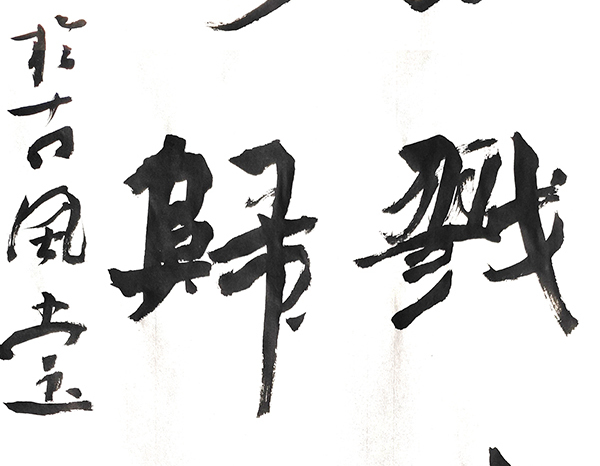 戮
歸
於古風堂